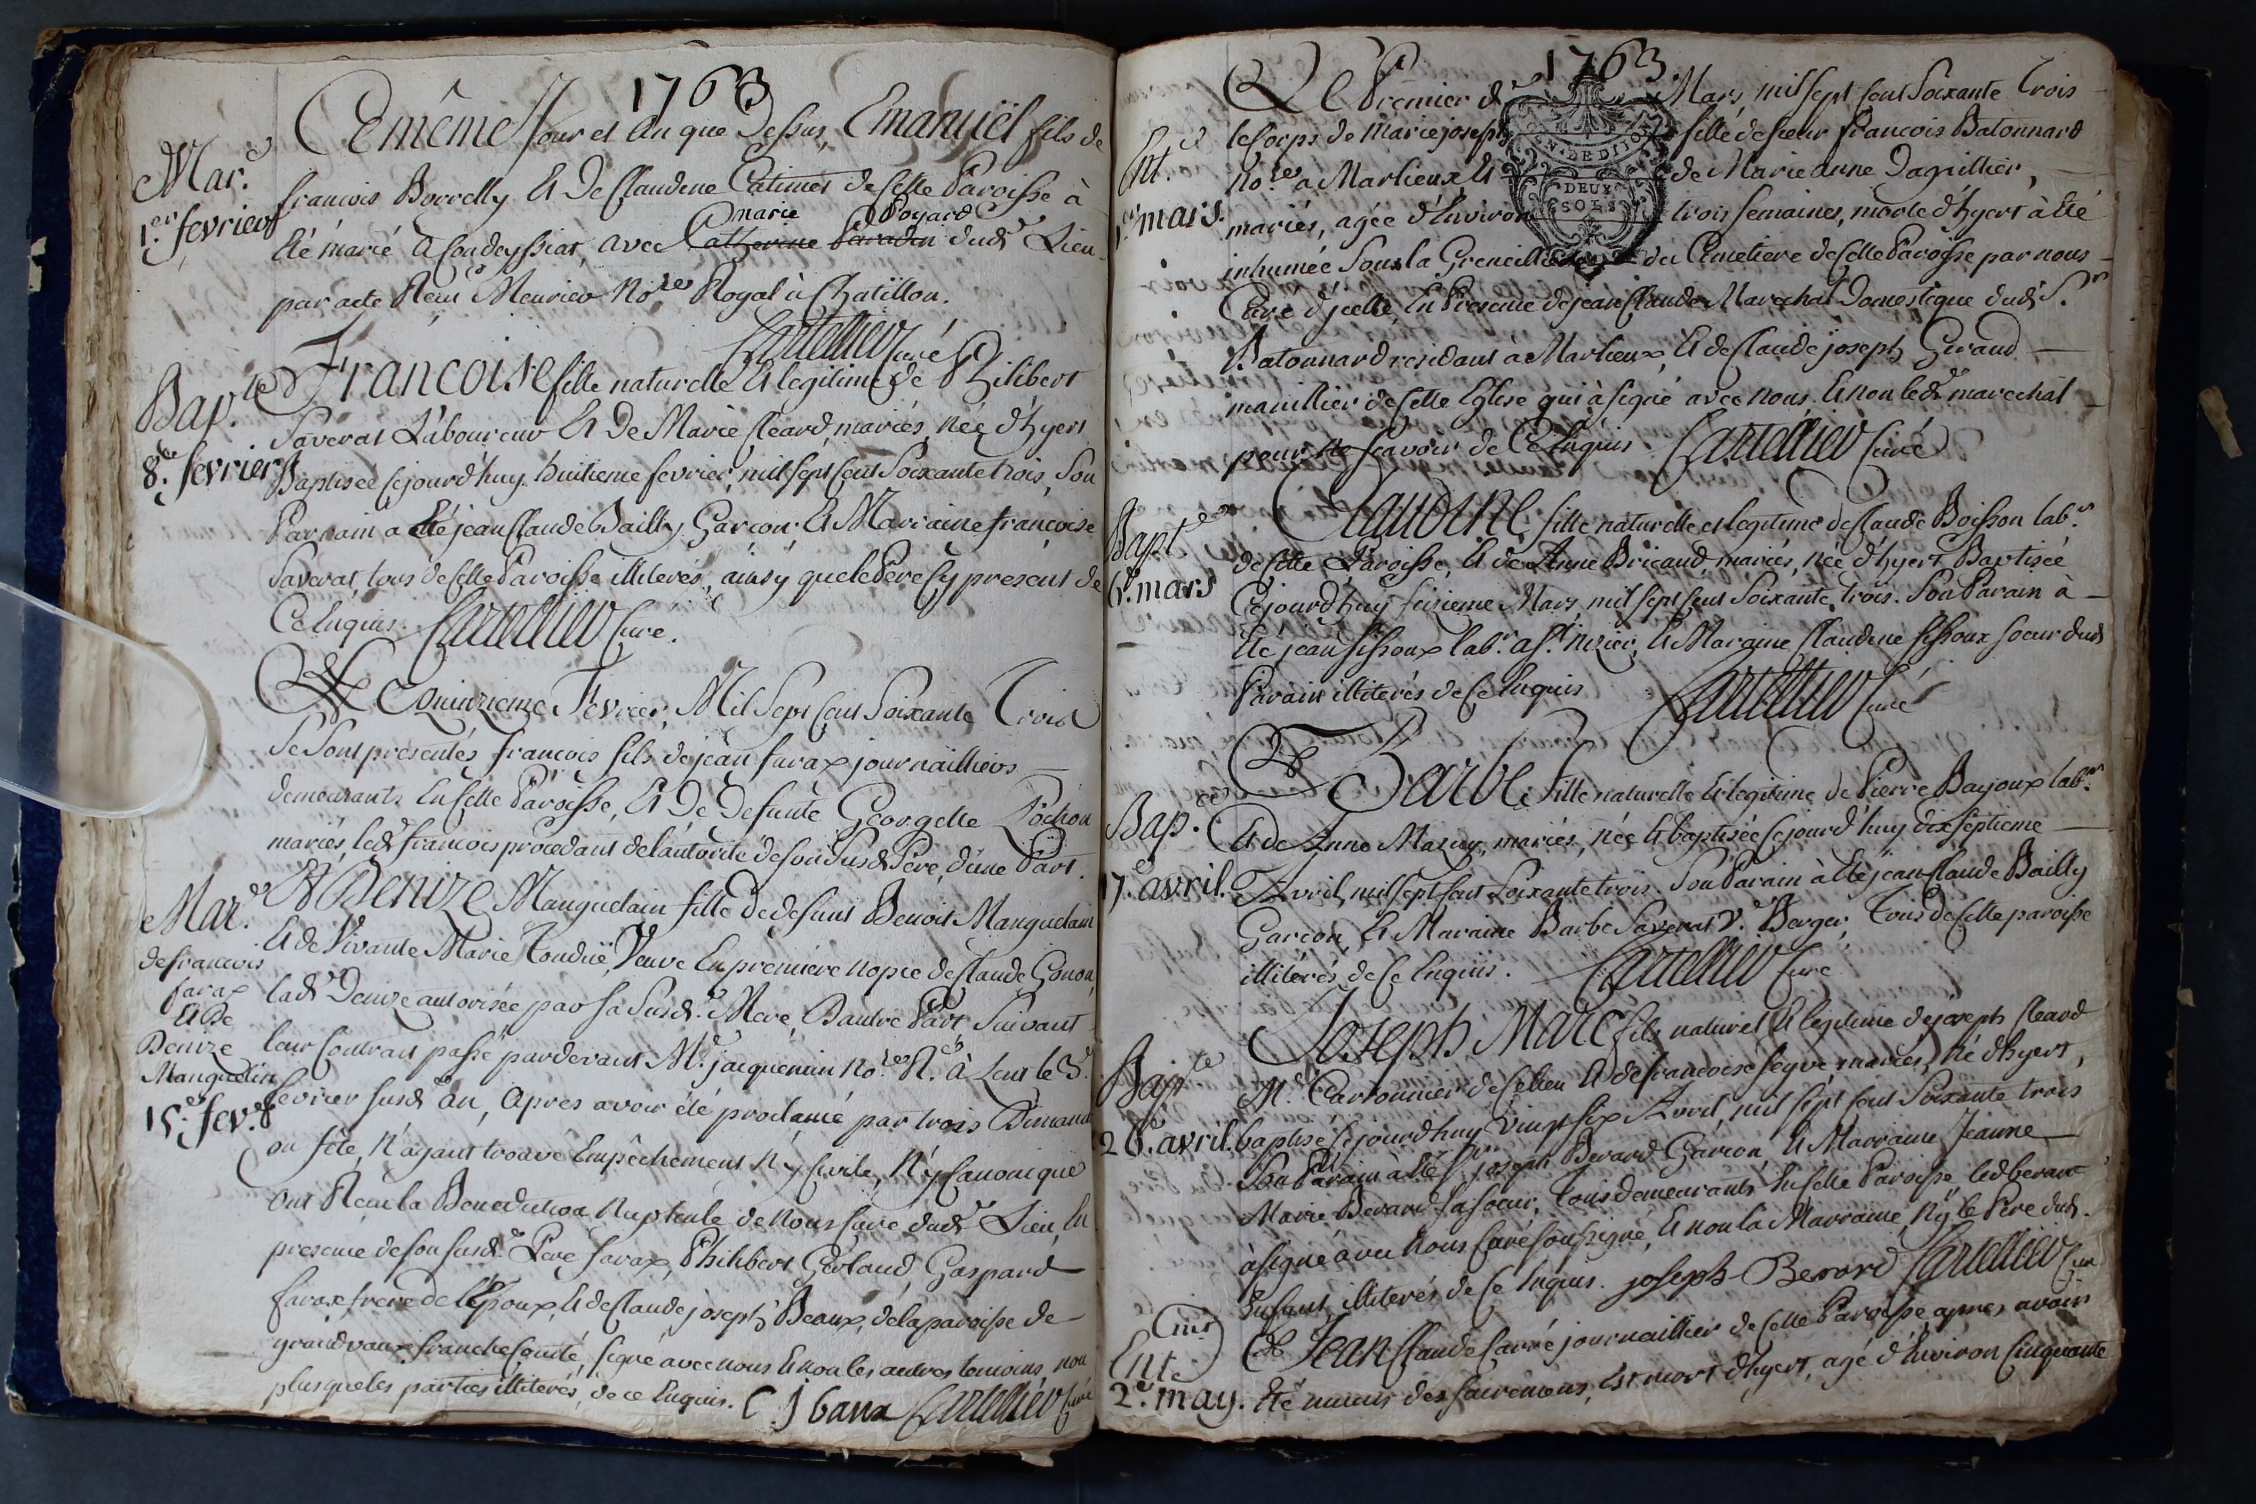 1763
Mar.e
1.er fevrier
Ce même Jour et An que Dessus, Emanuiel fils de
francois Borrelly Et De Claudine Catimel de Cette Paroisse à
marie Poyard
Eté marié A Condeyssiat, avec Catherine Paradin dud.t Lieu
par acte Reçu Meurier No.re Royal à Chatillon.
Cartellier Curé
Bap.te
8.e fevrier
Francoise fille naturelle Et legitime de Philibert
Saverat Laboureur Et De Marie Cleard, mariés, Née d'hyert
Baptisée cejourd'huy huitieme fevrier, mil sept cent Soixante trois, Son
Parrain a Eté jean Claude Bailly Garcon; Et Marraine francoise
Saverat, tous de Cette Paroisse illiterés, ainsy que le Pere Cy present de
Ce Enquis. Cartellier Curé.
Mar.e
de francois
farax
Et De
Denize
Manguelin
15.e fev.r
Le Quinzieme Fevrier, Mil Sept Cent Soixante Trois
Se Sont presentés francois fils de jean farax journailliers
demeurants En Cette Paroisse, Et De Defunte Georgette Pochon
mariés, led.t francois procedant de l'autorité de son Susd.t Pere, d'une Part.
Et Denize Manguelain fille de defunt Benoit Manguelain
Et de Vivante Marie Tonduë, Veuve En premiere nopce de Claude Gonon,
lad.e Denize autorisée par sa Susd.e Mere, D'autre Part Suivant
leur Contrart passé pardevant M.e jacquemin No.re R. à Lent le 3.e
fevrier susd.t an, Apres avoir été proclamé par trois Dimanch
ou fête, N'ayant trouvé Empêchement Ny Civile, N'y Canonique
Ont Recu la Benediction Nuptiale de Nous Curé dud.t Lieu, En
presence de son susd.t Pere farax, Philibert Gerland, Gaspard
farax frere de l'Epoux, Et de Claude joseph Beaux, de la paroisse de
grandvaux franche Comté, signé avec nous Et non les autres temoins, non
plus que les parties illiterés, de ce Enquis. C J baux Cartellier Curé
1763
Ent.e
1.er mars.
Le Premier de Mars, mil sept Cent Soixante Trois
le Corps de Marie joseph fille de sieur francois Batonnard
No.re a Marlieux, Et de Marie Anne Dagrillier,
mariés, agée d'Environ trois semaines, morte d'hyert à Eté
inhumée Sous la Greneillie du Cemetiere de Cette Paroisse par nous
Curé d'jcelle, En Presence de jean Claude Marechal Domestique dud.t S.r
Batonnard residant à Marlieux, Et de Claude joseph Giraud
manillier de Cette Eglise qui à signé avec nous. Et non led.t marechal
pour ne scavoir de Ce Enquis Cartellier Curé
GN. DE DIJON
DEUX
SOLS
Bapt.e
6.e mars
Claudine, fille naturelle et legitime de Claude Boisson lab.r
de Cette Paroisse, Et de Anne Bricaud, mariés, Née d'hyert, Baptisée
Cejourd'huy sixieme Mars mil sept cent Soixante trois. Son Parain à
Eté jean sissoux lab.r a s.t nizier, Et Maraine Claudine sissoux soeur dud.t
Parain illiterés de Ce Enquis Cartellier Curé
Bap.e
17.e avril.
Barbe, fille naturelle Et legitime de Pierre Bajoux lab.r
Et de Anne Mazuy, mariés, née Et baptisée Cejourd'huy dix septieme
Avril, mil sept cent Soixante trois. Son Parain à Eté jean Claude Bailly
Garcon, Et Maraine Barbe Saverat V.e Berger, Tous de Cette paroisse
illiterés de Ce Enquis. Cartellier Curé
Bap.te
26.e avril.
Joseph Marc fils naturel Et legitime de joseph Cleard
M.e Cartonnier de Ce lieu Et de francoise feyve, mariés, Né d'hyert,
baptisé Cejourd'huy Vingt six Avril, mil sept Cent Soixante trois
Son Parain à Eté S.r joseph Berard Garcon, Et Marraine Jeanne
Marie Berard sa soeur, Tous demeurants En Cette Paroisse led.t berard
à signé avec Nous Curé soussigné, Et non la Marraine, Ny le Pere dud.t
Enfant, illiterés de Ce Enquis. joseph Berard Cartellier Curé
Ent.e
2.e may.
Jean Claude Carré journaillier de Cette Paroisse, apres avoir
Eté munis des sacremens, Est mort d'hyert, agé d'Environ Cinquante